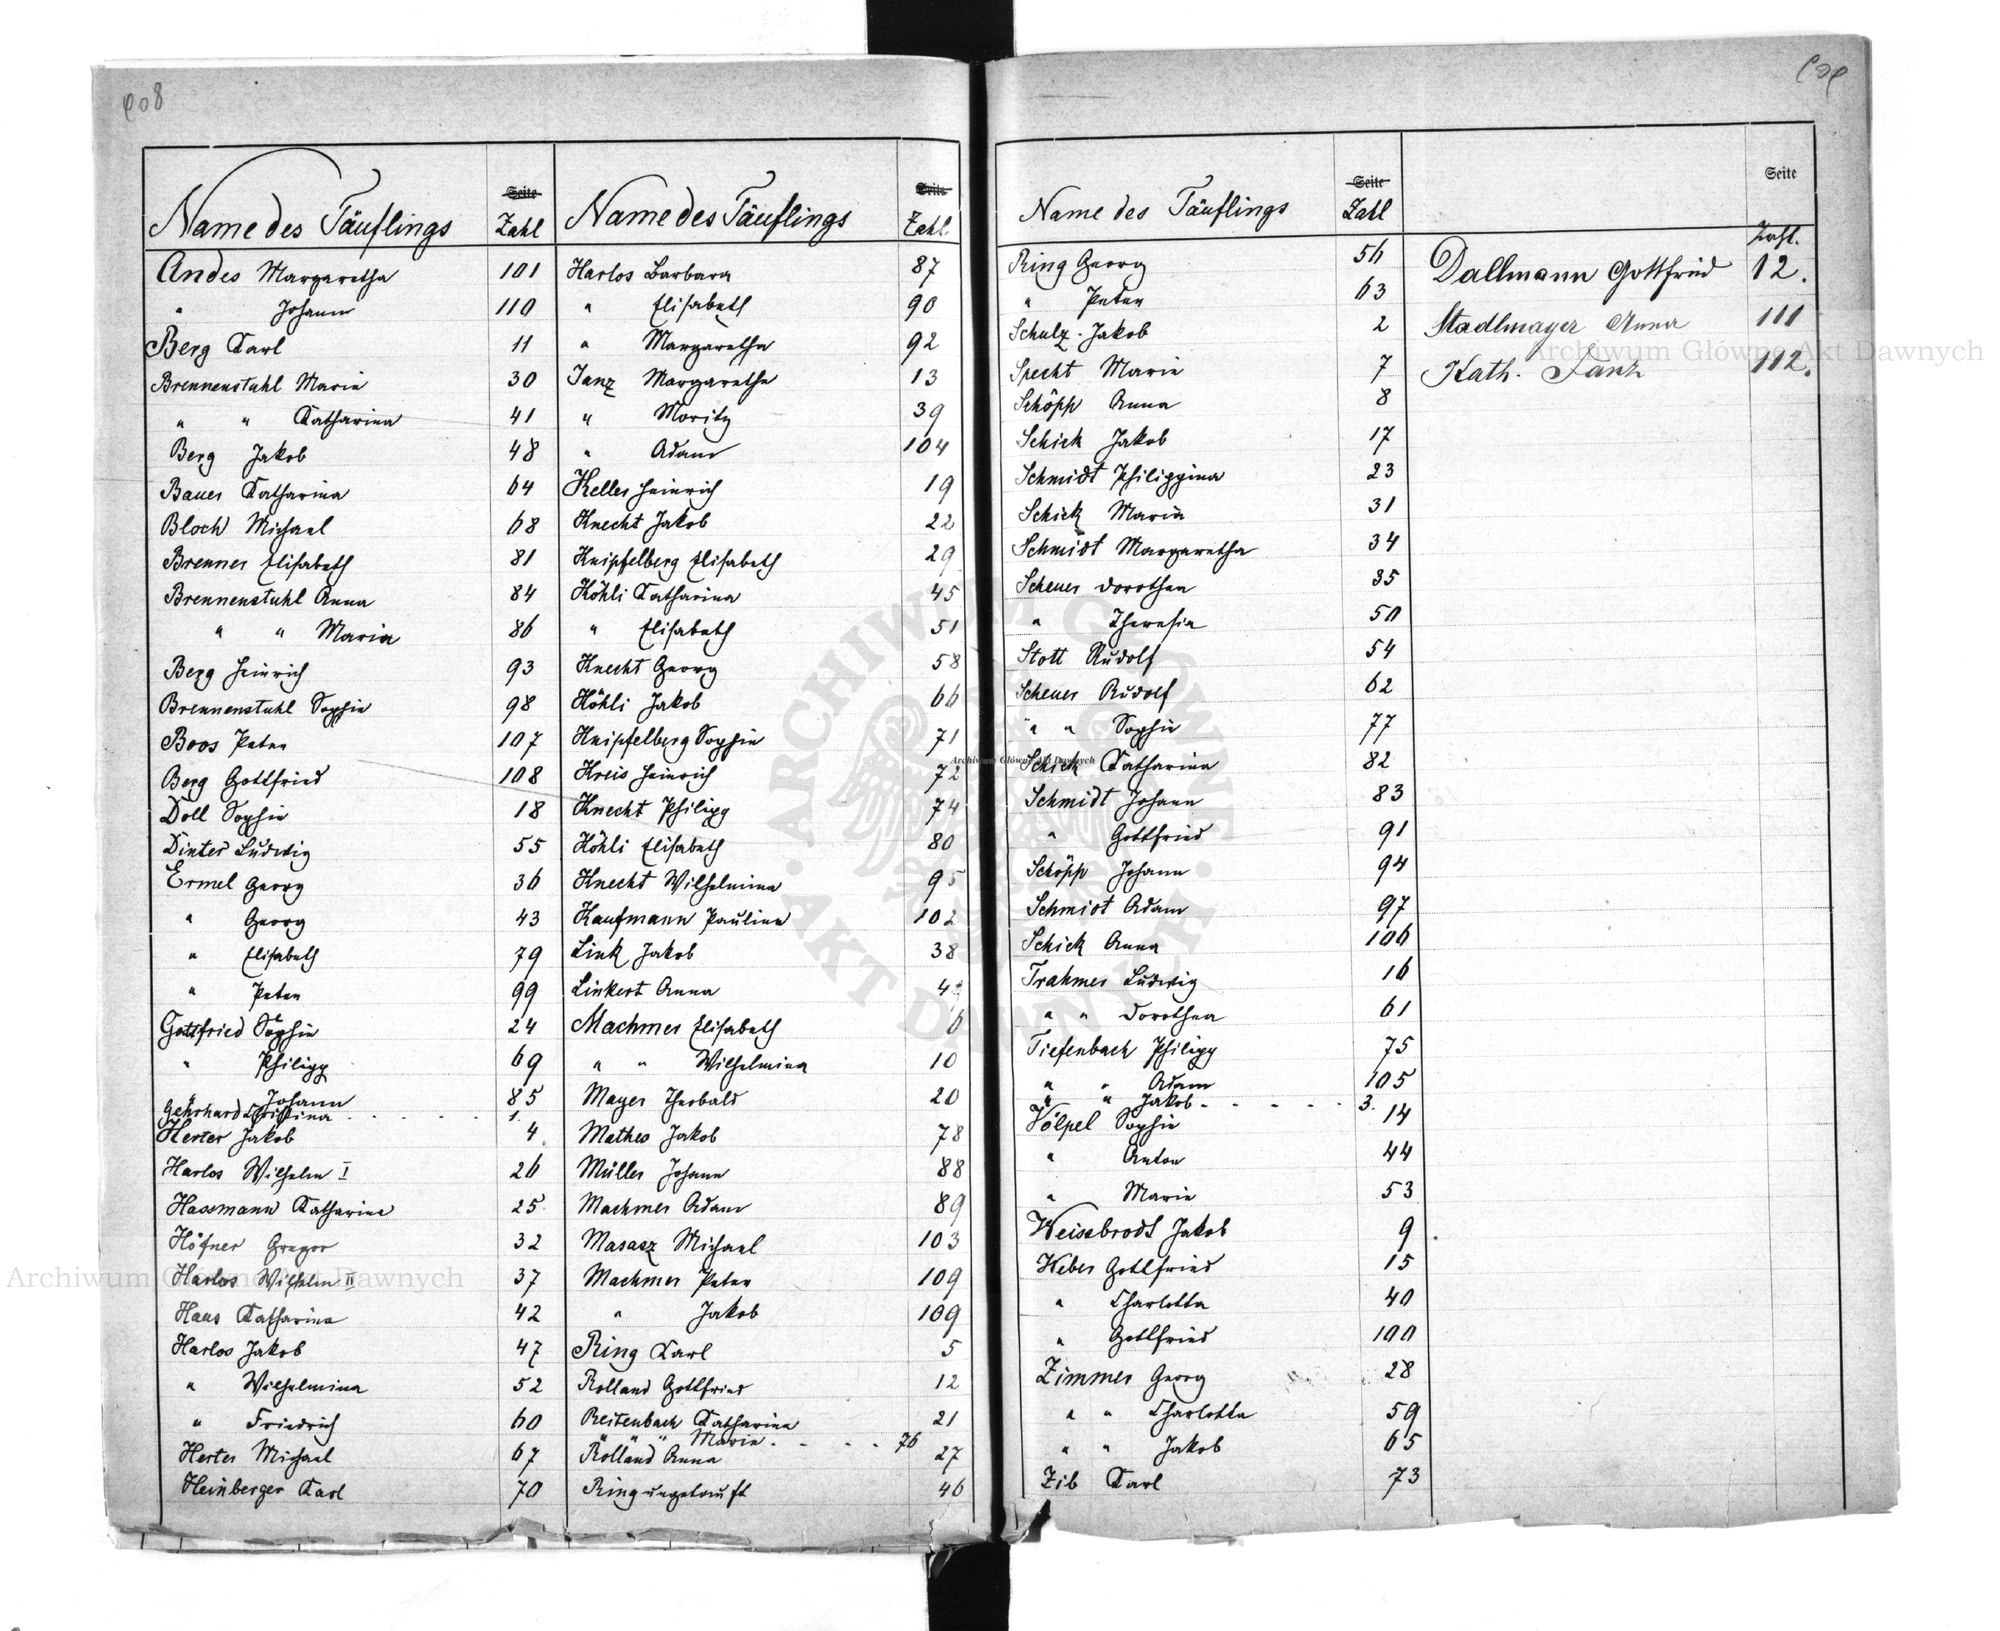 908
Name des Täuflings Seite Zahl
Andes Margaretha 101
" Johann 110
Berg Karl 11
Brennenstuhl Marie 30
" " Katharina 41
Berg Jakob 48
Bauer Katharina 64
Bloch Michael 68
Brenner Elisabeth 81
Brennenstuhl Anna 84
" " Maria 86
Berg Heinrich 93
Brennenstuhl Sophie 98
Boos Peter 107
Berg Gottfried 108
Doll Sophie 18
Dinter Ludwig 55
Ermel Georg 36
" Georg 43
" Elisabeth 79
" Peter 99
Gottfried Sophie 24
" Philipp 69
" Johann 85
Gehrhard Christina 1.
Herter Jakob 4
Harlos Wilhelm I 26
Hassmann Katharina 25
Höfner Gregor 32
Harlos Wilhelm II 37
Haus Katharina 42
Harlos Jakob 47
" Wilhelmina 52
" Friedrich 60
Herter Michael 67
Heinberger Karl 70
Name des Täuflings Seite Zahl
Harlos Barbara 87
" Elisabeth 90
" Margaretha 92
Janz Margaretha 13
" Moritz 39
" Adam 104
Keller Heinrich 19
Knecht Jakob 22
Knipfelberg Elisabeth 29
Köhli Katharina 45
" Elisabeth 51
Knecht Georg 58
Köhli Jakob 66
Knipfelberg Sophie 71
Kreis Heinrich 72
Knecht Philipp 74
Köhli Elisabeth 80
Knecht Wilhelmina 95
Kaufmann Paulina 102
Link Jakob 38
Linkert Anna
Machmer Elisabeth 6
" " Wilhelmina 10
Mayer Theobald 20
Mathes Jakob 78
Müller Johann 88
Machmer Adam 89
Masasz Michael 103
Machmer Peter 109
" Jakob 109
Ring Karl 5
Rolland Gottfried 12
Reitenbach Katharina 21
" " " Marie 76
Rolland Anna 27
Ring ungetauft 46
Name des Täuflings Seite Zahl
Ring Georg 56
" Peter 63
Schulz Jakob 2
Specht Marie 7
Schöpp Anna 8
Schick Jakob 17
Schmidt Philippina 23
Schick Maria 31
Schmidt Margaretha 34
Scheuer Dorothea 35
" Theresia 50
Stott Rudolf 54
Scheuer Rudolf 62
" " Sophie 77
Schick Katharina 82
Schmidt Johann 83
" Gottfried 91
Schöpp Johann 94
Schmidt Adam 97
Schick Anna 106
Trahmer Ludwig 16
" " Dorothea 61
Tiefenbach Philipp 75
" " Adam 105
" " Jakob 3.
Völpel Sophie 14
" Anton 44
" Marie 53
Weissbrodt Jakob 9
Weber Gottfried 15
" Charlotta 40
" Gottfried 100
Zimmer Georg 28
" " Charlotta 59
" " Jakob 65
Zib Karl 73
Seite
Zahl.
Dallmann Gottfried 12.
Stadlmayer Anna 111
Kath. Janz 112.
Archiwum Główne Akt Dawnych
Archiwum Główne Akt Dawnych
Archiwum Główne Akt Dawnych
ARCHIWUM GŁÓWNE · AKT DAWNYCH ·